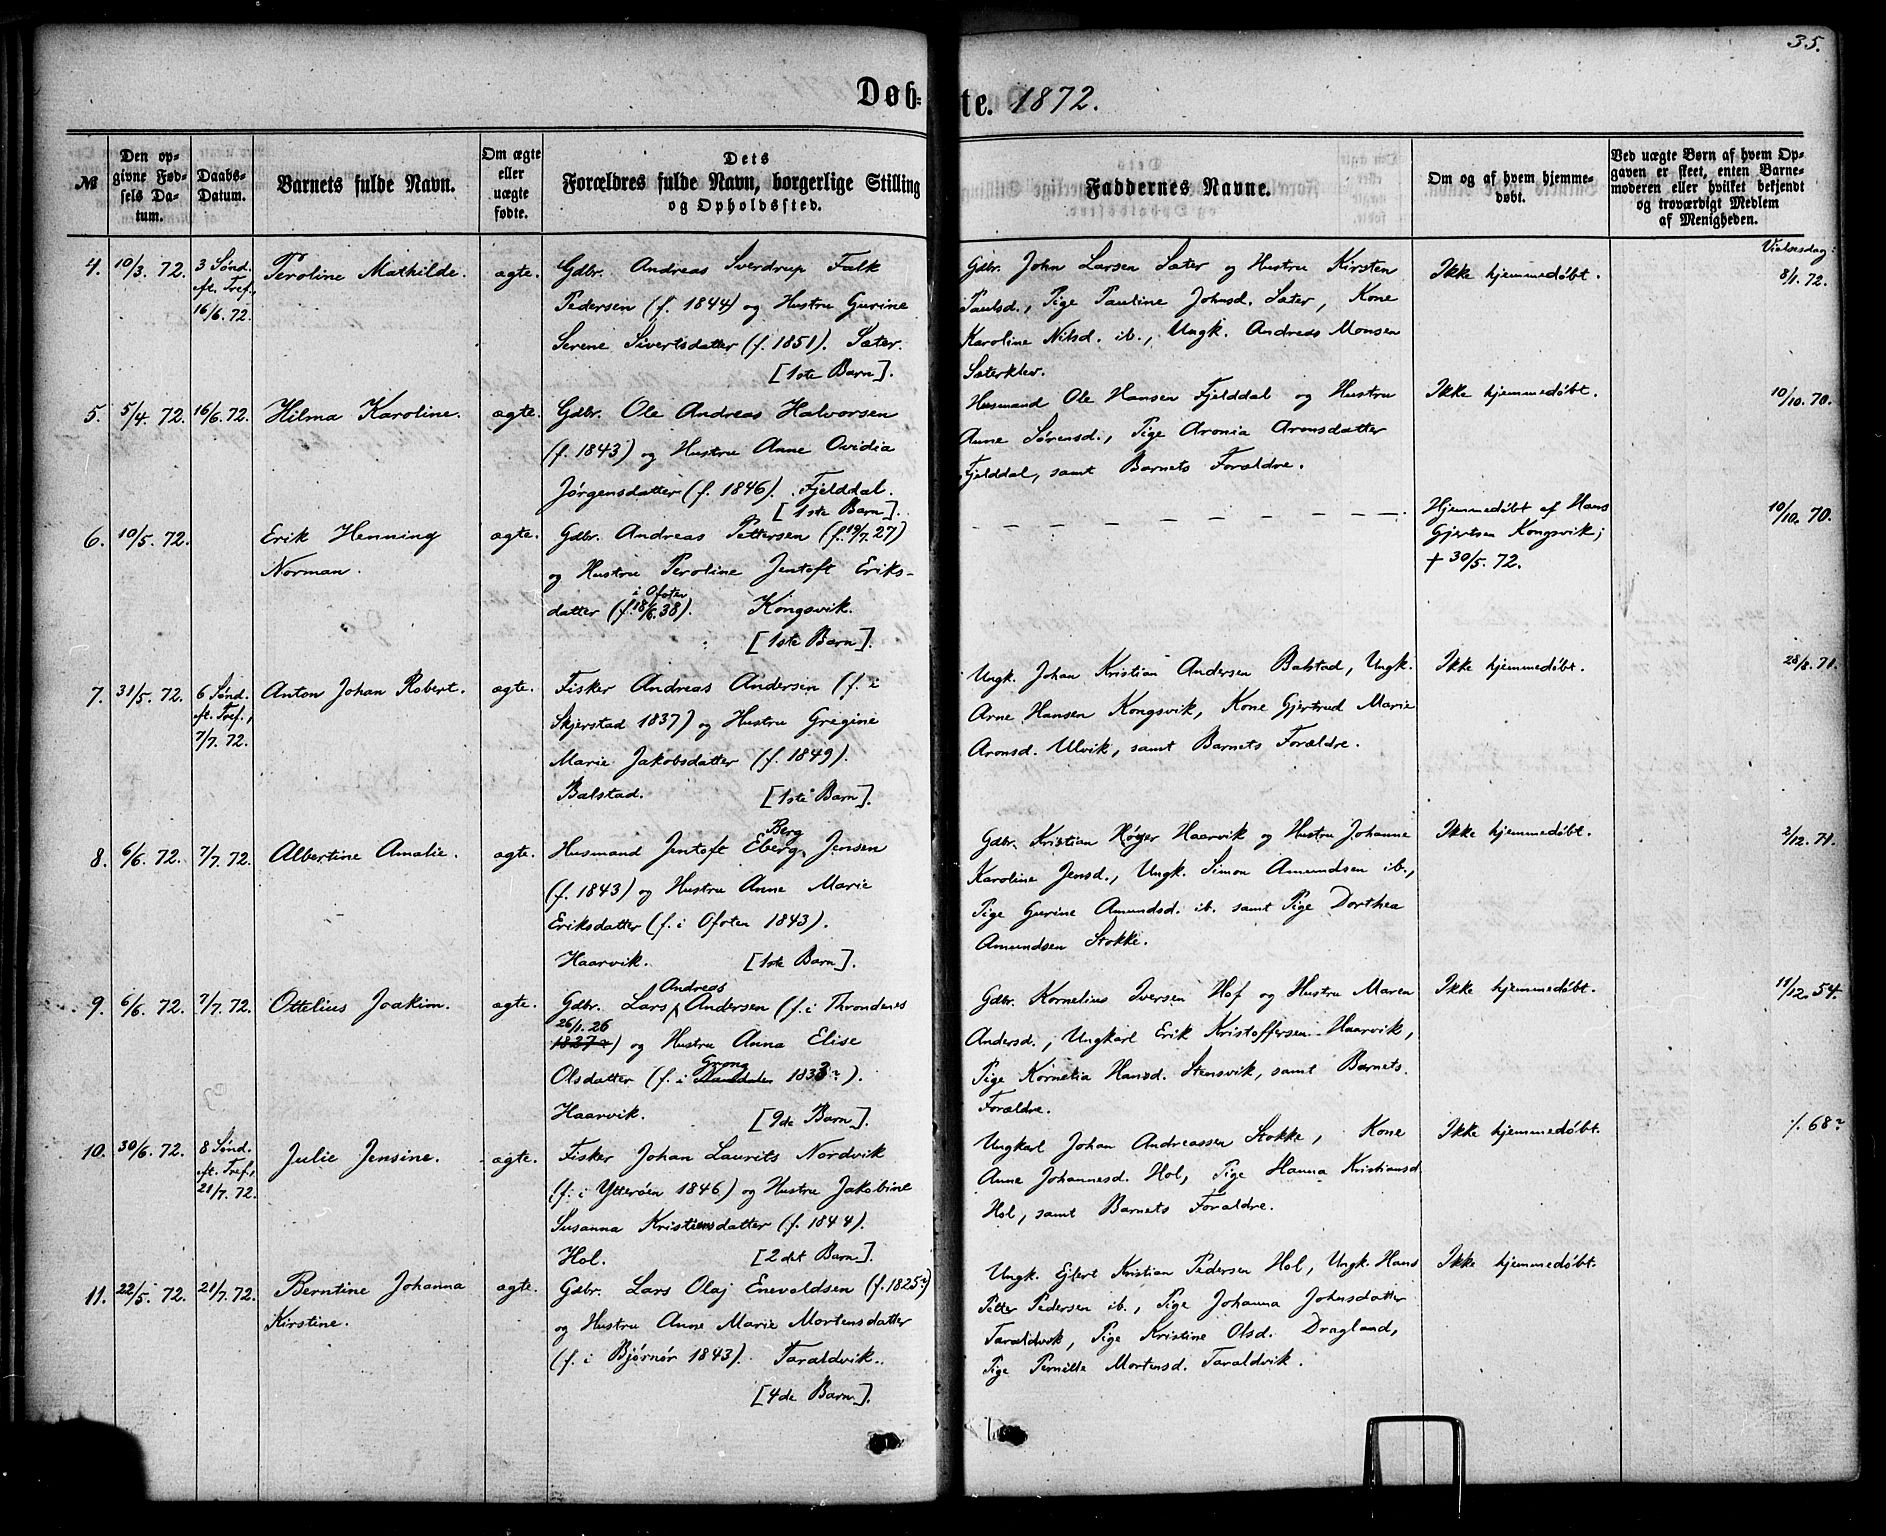 35.
Døbte. 1872.
№
Den opgivne Fødsels Datum.
Daabs-Datum.
Barnets fulde Navn.
Om ægte eller uægte fødte.
Dets Forældres fulde Navn, borgerlige Stilling og Opholdssted.
Faddernes Navne.
Om og af hvem hjemmedøbt.
Ved uægte Børn af hvem Opgaven er skeet, enten Barnemoderen eller hvilket bekjendt og troværdigt Medlem af Menigheden.
Vielsesdag:
4. 10/3. 72. 3 Sønd. eft. Tref., 16/6. 72. Peroline Mathilde. ægte.
Gdbr. Andreas Sverdrup Falk
Pedersen (f. 1844) og Hustru Gurine
Serene Sivertsdatter (f. 1851). Sæter.
[1ste Barn].
Gdbr. John Larsen Sæter og Hustru Kirsten
Paulsd., Pige Pauline Johnsd. Sæter, Kone
Karoline Nilsd. ib., Ungk. Andreas Monsen
Sæterklev.
Ikke hjemmedøbt.
8/1. 72.
5. 5/4. 72. 16/6. 72. Hilma Karoline. ægte.
Gdbr. Ole Andreas Halvorsen
(f. 1843) og Hustru Anne Ovidia
Jørgensdatter (f. 1846). Fjelddal.
[1ste Barn].
Husmand Ole Hansen Fjelddal og Hustru
Anne Sørensd., Pige Aronia Aronsdatter
Fjelddal, samt Barnets Forældre.
Ikke hjemmedøbt.
10/10. 70.
6. 10/5. 72. Erik Henning
Norman. ægte.
Gdbr. Andreas Pettersen (f. 19/7. 27)
og Hustru Peroline Jentoft Eriks-
datter (f. i Ofoten 18/6. 38). Kongsvik.
[1ste Barn].
— — — — — — — — —
Hjemmedøbt af Hans
Gjertsen Kongsvik;
† 30/5. 72.
10/10. 70.
7. 31/5. 72. 6 Sønd. eft. Tref., 7/7. 72. Anton Johan Robert. ægte.
Fisker Andreas Andersen (f. i
Skjerstad 1837) og Hustru Gregine
Marie Jakobsdatter (f. 1849).
Balstad. [1ste Barn].
Ungk. Johan Kristian Andersen Balstad, Ungk.
Arne Hansen Kongsvik, Kone Gjertrud Marie
Aronsd. Ulvik, samt Barnets Forældre.
Ikke hjemmedøbt.
8. 6/6. 72. 7/7. 72. Albertine Amalie. ægte.
Husmand Jentoft Eberg Berg Jensen
(f. 1843) og Hustru Anne Marie
Eriksdatter (f. i Ofoten 1843).
Haarvik. [1ste Barn].
Gdbr. Kristian Høyer Haarvik og Hustru Johanne
Karoline Jensd., Ungk. Simon Amundsen ib.,
Pige Gurine Amundsd. ib. samt Pige Dorthea
Amundsen Stokke.
Ikke hjemmedøbt.
2/12. 71.
9. 6/6. 72. 7/7. 72. Ottelius Joakim. ægte.
Gdbr. Lars Andreas Andersen (f. i Throndenes
26/1. 26 1827?) og Hustru Anna Elise
Olsdatter (f. i Grong Namdalen 1833?).
Haarvik. [9de Barn].
Gdbr. Kornelius Iversen Hof og Hustru Maren
Andersd., Ungkarl Erik Kristoffersen Haarvik,
Pige Kornelia Hansd. Stensvik, samt Barnets
Forældre.
Ikke hjemmedøbt.
11/12. 54.
10. 30/6. 72. 8 Sønd. eft. Tref., 21/7. 72. Julie Jensine. ægte.
Fisker Johan Laurits Nordvik
(f. i Ytterøen 1846) og Hustru Jakobine
Susanna Kristiansdatter (f. 1844).
Hol. [2det Barn].
Ungkarl Johan Andreassen Stokke, Kone
Anne Johannesd. Hol, Pige Hanna Kristiansd.
Hol, samt Barnets Forældre.
Ikke hjemmedøbt.
/. 68?
11. 22/5. 72. 21/7. 72. Berntine Johanna
Kirstine. ægte.
Gdbr. Lars Olaj Enevoldsen (f. 1825?)
og Hustru Anne Marie Mortensdatter
(f. i Bjørnør 1843). Taraldvik.
[4de Barn].
Ungk. Ejlert Kristian Pedersen Hol, Ungk. Hans
Petter Pedersen ib., Pige Johanna Johnsdatter
Taraldvik, Pige Kristine Olsd. Dragland,
Pige Pernille Mortensd. Taraldvik.
Ikke hjemmedøbt.